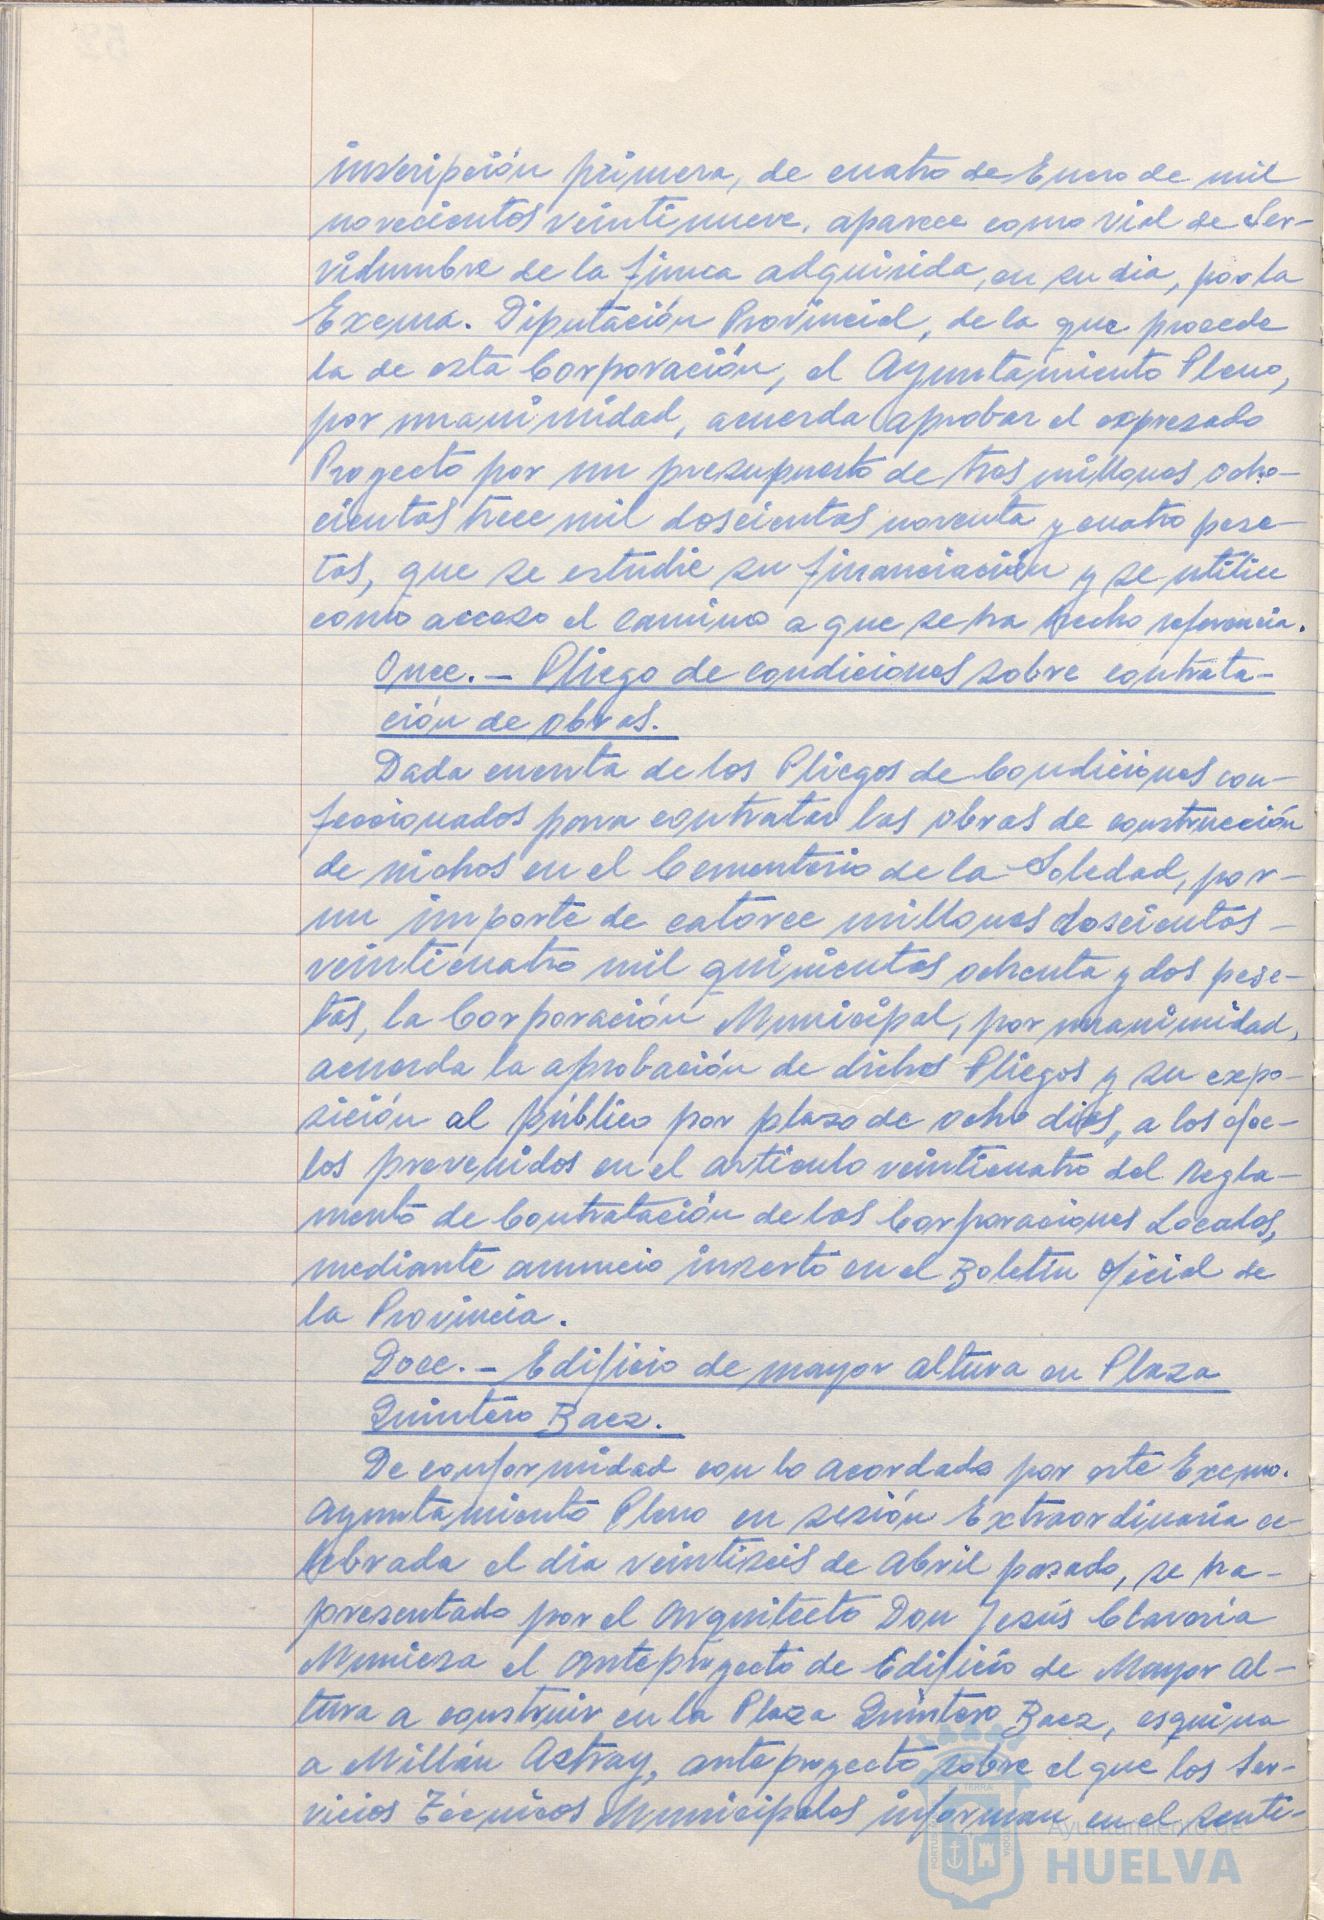 inscripción primera, de cuatro de Enero de mil
novecientos veintinueve, aparece como vial de Ser-
vidumbre de la finca adquirida, en su dia, por la
Excma. Diputación Provincial, de la que procede
la de esta Corporación, el Ayuntamiento Pleno,
por unanimidad, acuerda aprobar el expresado
Proyecto por un presupuesto de tres millones ocho-
cientas trece mil doscientas noventa y cuatro pese-
tas, que se estudie su financiación y se utilice
como acceso el camino a que se ha hecho referencia.
Once.- Pliego de condiciones sobre contrata-
ción de obras.
Dada cuenta de los Pliegos de Condiciones con-
feccionados para contratar las obras de construcción
de nichos en el Cementerio de la Soledad, por-
un importe de catorce millones doscientas-
veinticuatro mil quinientas ochenta y dos pese-
tas, la Corporación Municipal, por unanimidad,
acuerda la aprobación de dichos Pliegos y su expo-
sición al público por plazo de ocho dias, a los efec-
tos prevenidos en el articulo veinticuatro del Regla-
mento de Contratación de las Corporaciones Locales,
mediante anuncio inserto en el Boletín Oficial de
la Provincia.
Doce.- Edificio de mayor altura en Plaza
Quintero Baez.
De conformidad con lo acordado por este Excmo.
Ayuntamiento Pleno en sesión Extraordinaria ce-
lebrada el dia veintiseis de Abril pasado, se ha-
presentado por el Arquitecto Don Jesús Clavería
Muniesa el anteproyecto de Edificio de Mayor Al-
tura a construir en la Plaza Quintero Baez, esquina
a Millán Astray, anteproyecto sobre el que los Ser-
vicios Técnicos Municipales informan en el senti-
Ayuntamiento de
HUELVA